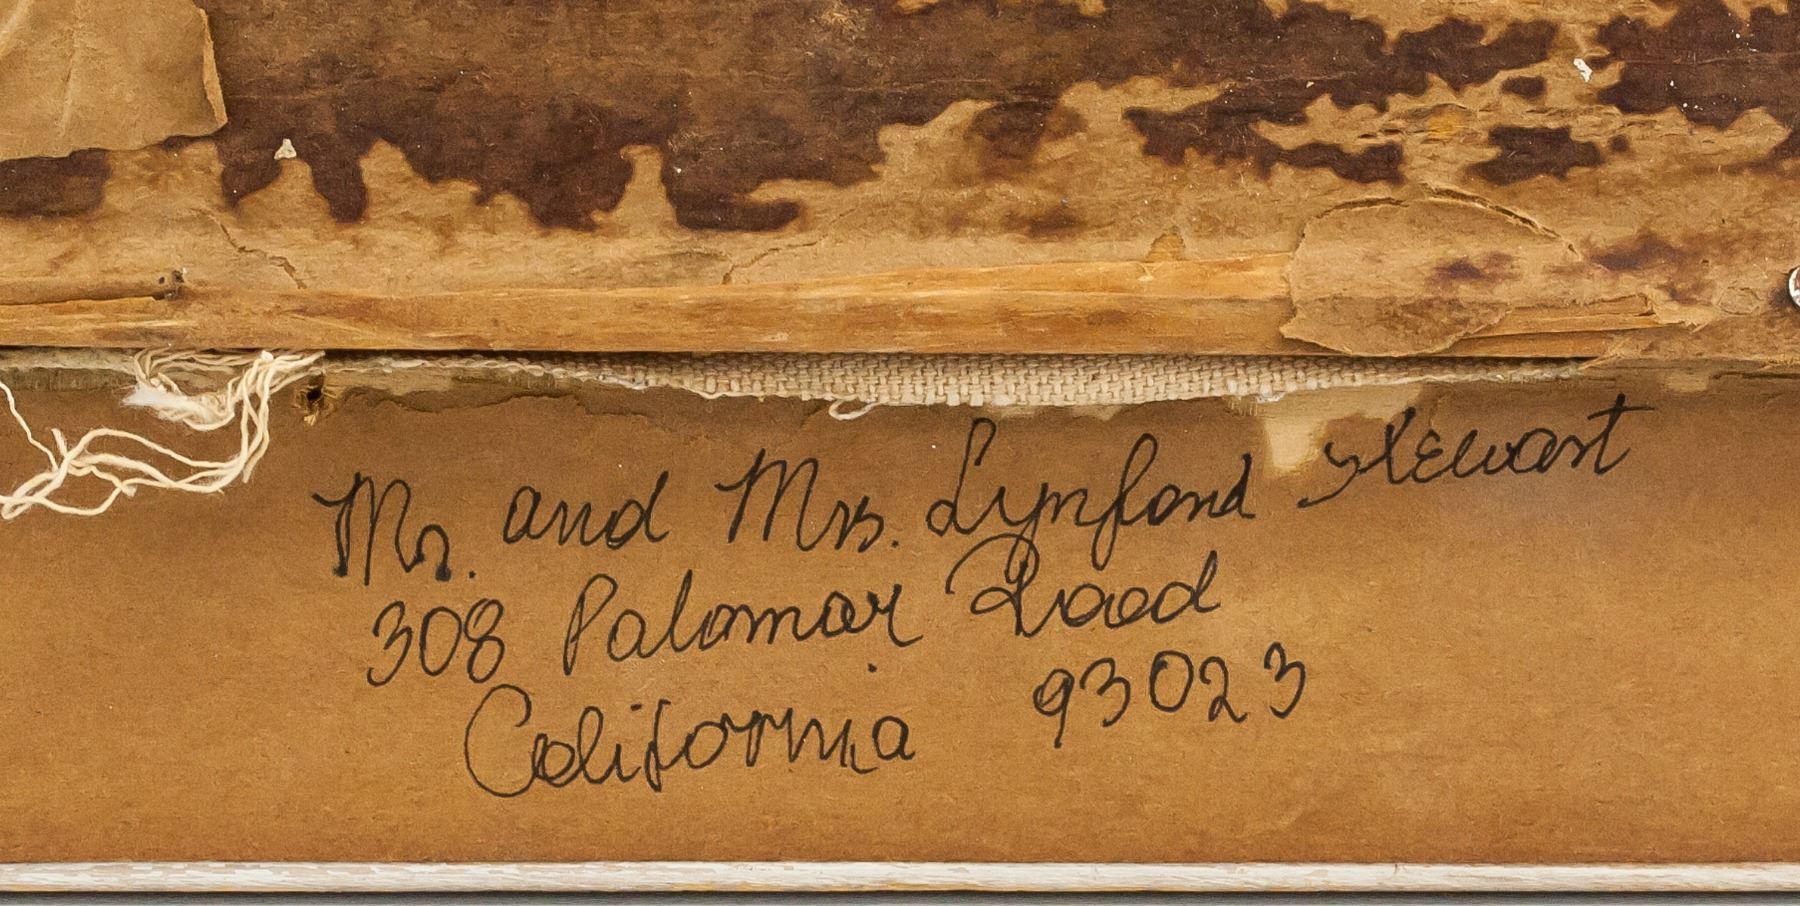 Mr. and Mrs. Lynford Stewart
308 Palomar Road
California 93023